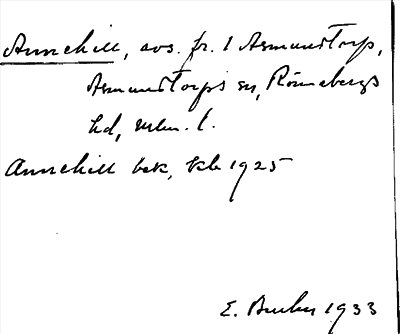 Annehill, avs. fr. 1 Asmundtorp,
Asmundtorps sn, Rönnebergs
hd, Mlm. l.
Annehill bek, Kb 1925
E. 1933